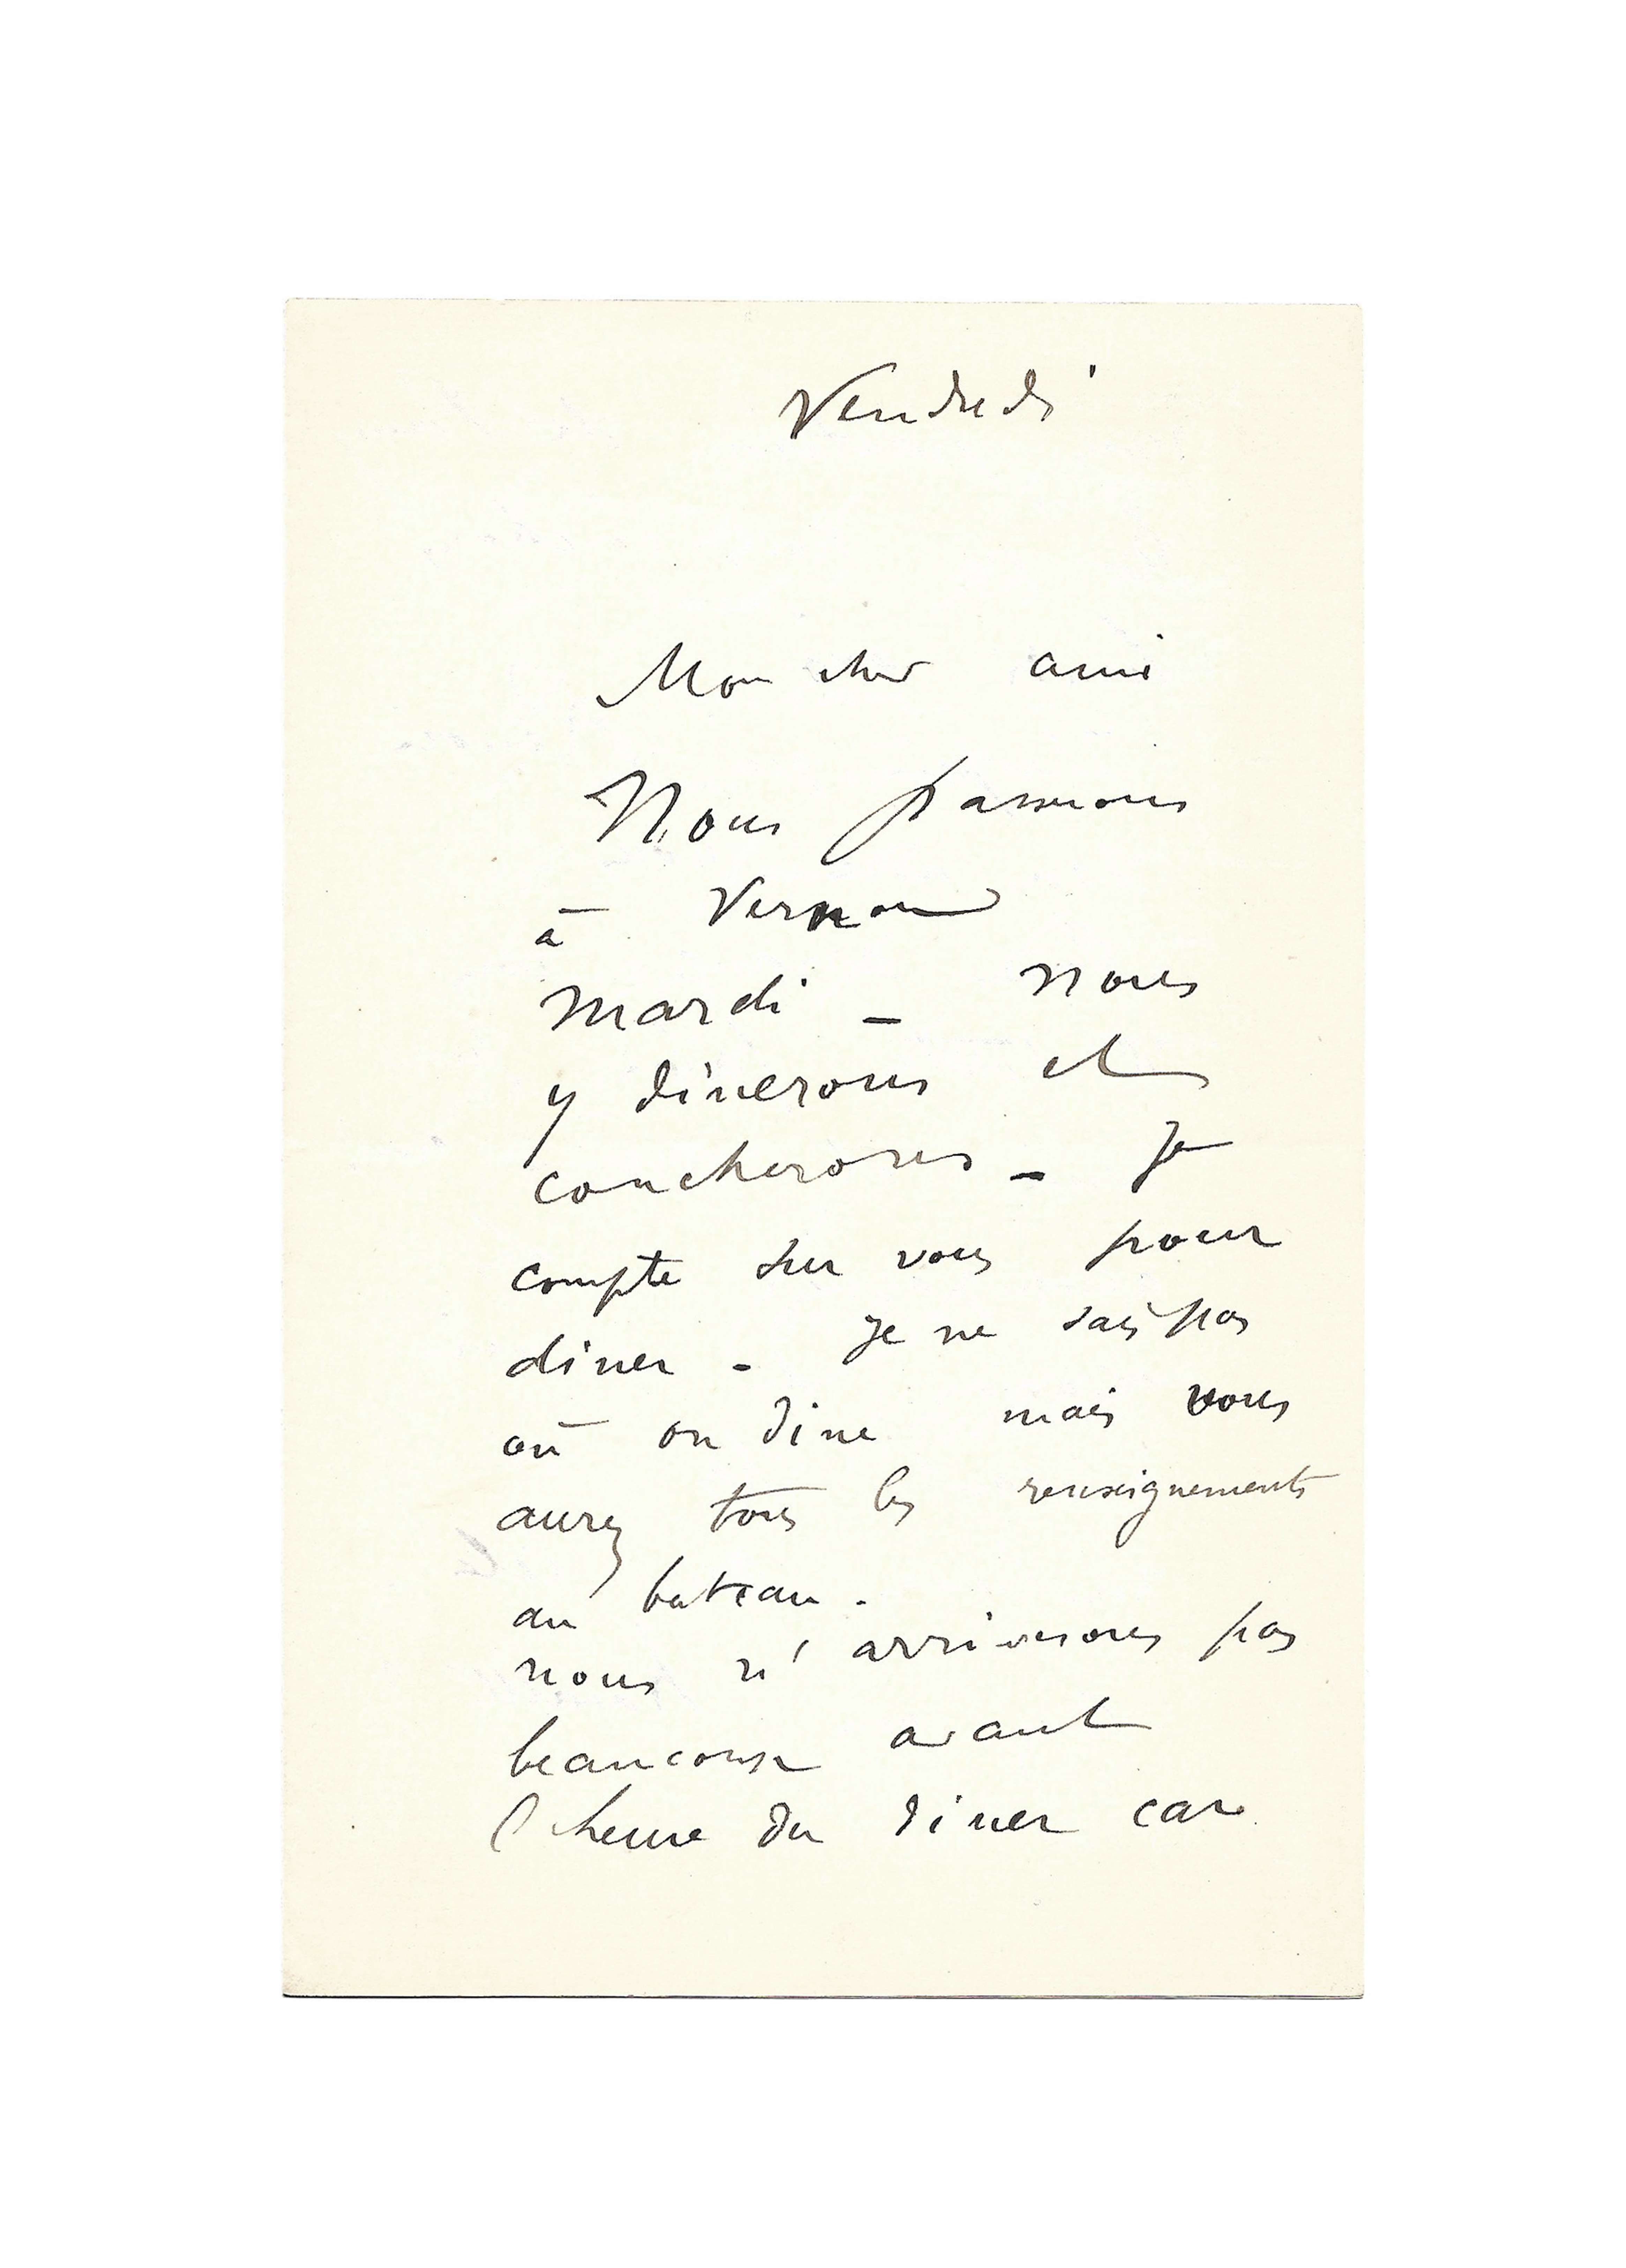 Vendredi
Mon cher ami
Nous passerons
à Vernon
mardi _ nous
y dinerons et
coucherons _ je
compte sur vous pour
diner - je ne sais pas
où on dine mais vous
aurez tous les renseignements
au bateau.
nous n'arriverons pas
beaucoup avant
l'heure du diner car